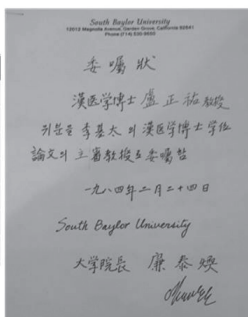 South Baylor University
12012 Magnolia Avenue, Garden Grove, California 92641
Phone (714) 530-9650
委囑狀
漢医学博士 盧正祐 教授
귀분을 李基太 의 漢医学博士学位
論文의 主審教授로 委囑함
一九八四年 二月 二十四日
South Baylor University
大学院長 廉泰煥